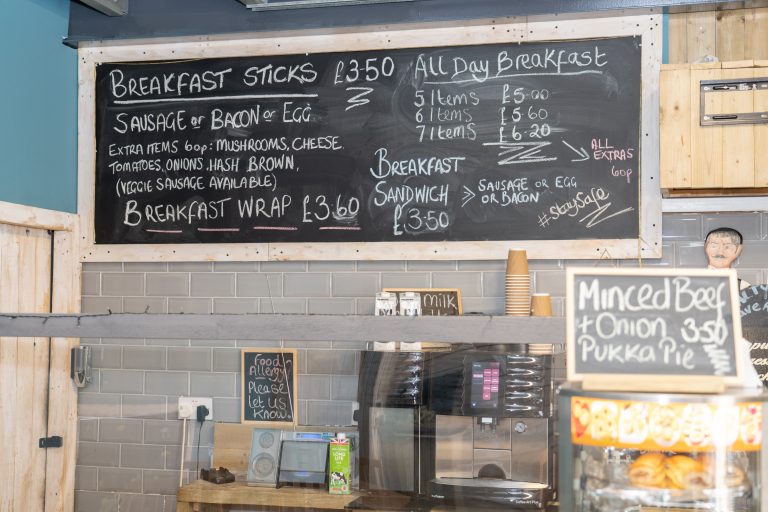 BREAKFAST STICKS £3.50
SAUSAGE OR BACON OR EGG
EXTRA ITEMS 60p: MUSHROOMS, CHEESE,
TOMATOES, ONIONS, HASH BROWN,
(VEGGIE SAUSAGE AVAILABLE)
BREAKFAST WRAP £3.60
All Day Breakfast
5 Items £5.00
6 Items £5.60
7 Items £6.20
ALL
EXTRAS
60p
BREAKFAST
SANDWICH
£3.50
SAUSAGE OR EGG
OR BACON
#staySafe
MILK
Food
Allergy
Please
Let us
Know.
Minced Beef
+ Onion 3.50
Pukka Pie